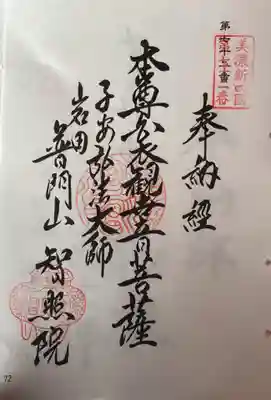 美濃新四国
第七十一番
奉納経
本尊 観世音菩薩
子安弘法大師
岩田
普門山 智照院
72